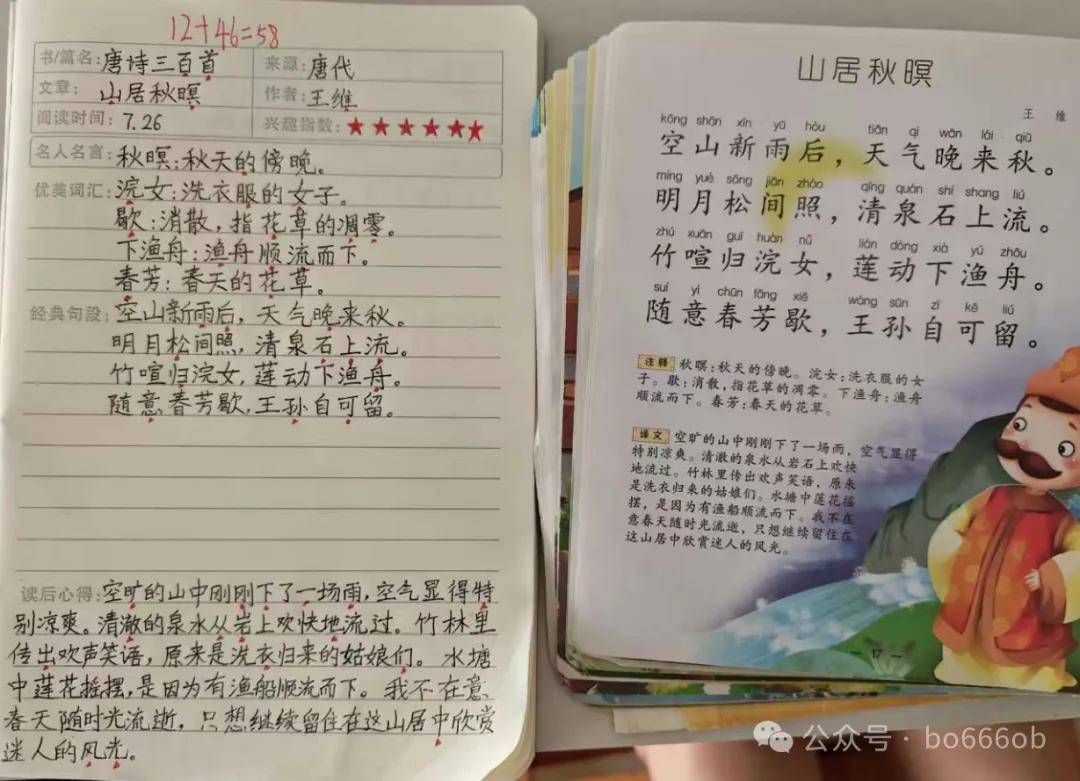 12+46=58
书/篇名: 唐诗三百首 来源: 唐代
文章: 山居秋暝 作者: 王维
阅读时间: 7.26 兴趣指数: ★★★★★★
名人名言: 秋暝:秋天的傍晚。
优美词汇: 浣女:洗衣服的女子。
歇:消散,指花草的凋零。
下渔舟:渔舟顺流而下。
春芳:春天的花草。
经典句段: 空山新雨后,天气晚来秋。
明月松间照,清泉石上流。
竹喧归浣女,莲动下渔舟。
随意春芳歇,王孙自可留。
读后心得: 空旷的山中刚刚下了一场雨,空气显得特
别凉爽。清澈的泉水从岩上欢快地流过。竹林里
传出欢声笑语,原来是洗衣归来的姑娘们。水塘
中莲花摇摆,是因为有渔船顺流而下。我不在意
春天随时光流逝,只想继续留住在这山居中欣赏
迷人的风光。
山居秋暝
王 维
kōng shān xīn yǔ hòu tiān qì wǎn lái qiū
空山新雨后,天气晚来秋。
míng yuè sōng jiān zhào qīng quán shí shang liú
明月松间照,清泉石上流。
zhú xuān guī huàn nǚ lián dòng xià yú zhōu
竹喧归浣女,莲动下渔舟。
suí yì chūn fāng xiē wáng sūn zì kě liú
随意春芳歇,王孙自可留。
注释 秋暝:秋天的傍晚。浣女:洗衣服的女
子。歇:消散,指花草的凋零。下渔舟:渔舟
顺流而下。春芳:春天的花草。
译文 空旷的山中刚刚下了一场雨,空气显得
特别凉爽。清澈的泉水从岩石上欢快
地流过。竹林里传出欢声笑语,原来
是洗衣归来的姑娘们。水塘中莲花摇
摆,是因为有渔船顺流而下。我不在
意春天随时光流逝,只想继续留住在
这山居中欣赏迷人的风光。
— 17 —
公众号 · bo666ob